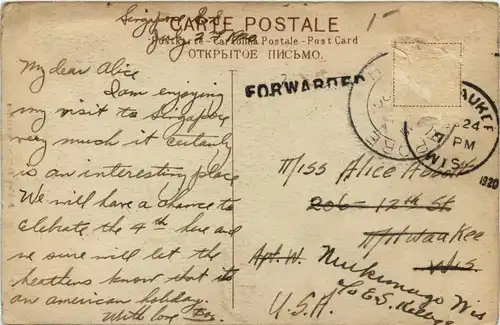 Singapore S.S.
July 2nd 1920
CARTE POSTALE
Postkarte - Cartolina Postale - Post Card
ОТКРЫТОЕ ПИСЬМО.
My dear Alice
I am enjoying
my visit to Singapore
very much it certainly
is an interesting place
We will have a chance to
celebrate the 4th here and
we sure will let the
heathens know that its
an american holiday.
With love
FORWARDED
24
PM
1920
Miss Alice Abbott
206-12th St
Milwaukee
Apt. W. Wis.
Mukwonago Wis
U.S.A. c/o E.S. Kellogg